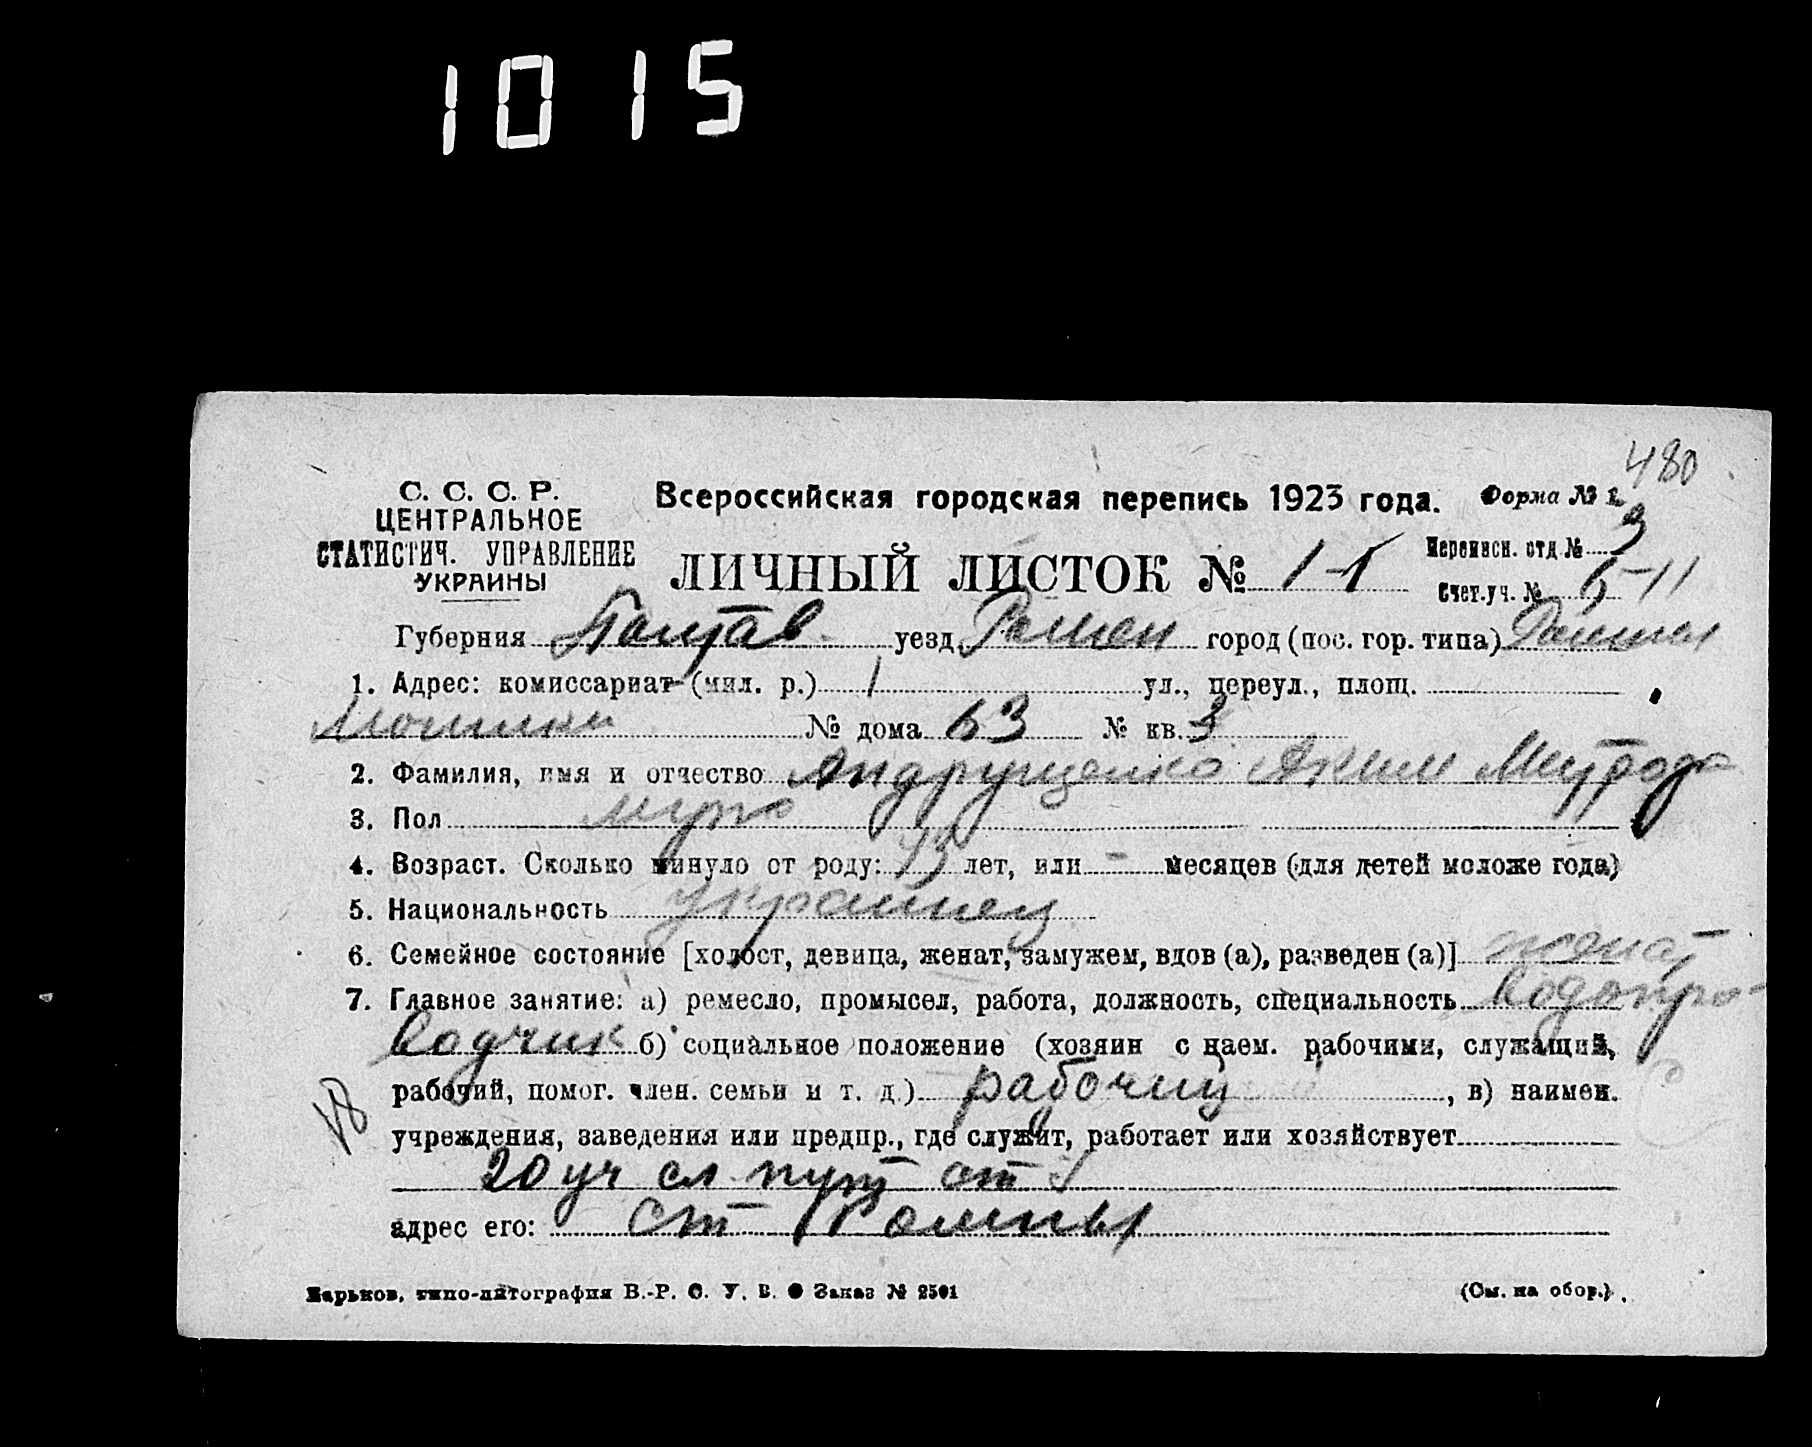 1015
480
С. С. С. Р.
ЦЕНТРАЛЬНОЕ
СТАТИСТИЧ. УПРАВЛЕНИЕ
УКРАИНЫ
Всероссийская городская перепись 1923 года. Форма № 1.
ЛИЧНЫЙ ЛИСТОК № 1-1
Переписн. отд № 3
Счет.уч. № 6-11
Губерния Полтав уезд Ромен город (пос. гор. типа) Ромны
1. Адрес: комиссариат (мил. р.) 1 ул., переул., площ.
№ дома 63 № кв. 3
2. Фамилия, имя и отчество Андрущенко Аким
3. Пол муж
4. Возраст. Сколько минуло от роду: 43 лет, или - месяцев (для детей моложе года)
5. Национальность украинец
6. Семейное состояние [холост, девица, женат, замужем, вдов (а), разведен (а)] женат
7. Главное занятие: а) ремесло, промысел, работа, должность, специальность водопро-
водчик б) социальное положение (хозяин с наем. рабочими, служащий,
рабочий, помог. член. семьи и т. д.) рабочий, в) наимен.
учреждения, заведения или предпр., где служит, работает или хозяйствует
20 уч сл пут ст
адрес его: ст Ромны
Харьков, типо-литография В.-Р. С. У. В. Заказ № 2501
(См. на обор.)